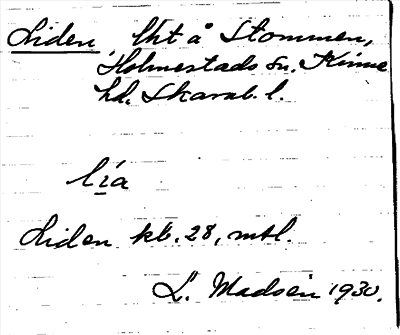 Liden, lht å Stommen,
Holmestads sn. Kinne
hd. Skarab. l.
lía
Liden kb. 28, mtl.
L. Madsén 1930.